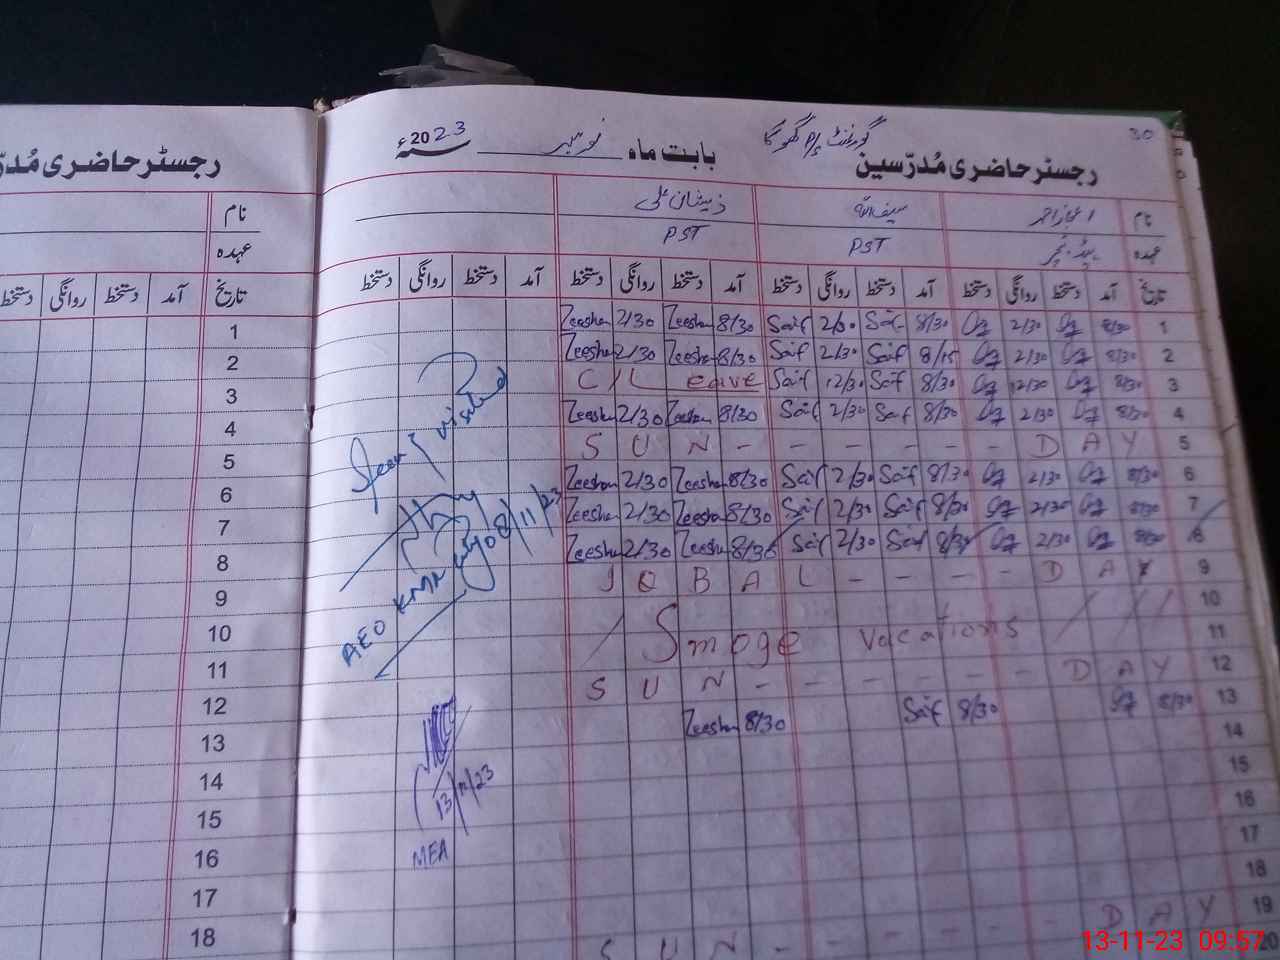 رجسٹر حاضری مُدرّسین گورنمنٹ P/S بابت ماہ نومبر سنہ 2023ء
30
نام اعجاز احمد سیف اللہ ذیشان علی
عہدہ PST PST
تاریخ آمد دستخط روانگی دستخط آمد دستخط روانگی دستخط آمد دستخط روانگی دستخط آمد دستخط روانگی دستخط
1 8/30 2/30 8/30 Saif 2/30 Saif 8/30 Zeeshan 2/30 Zeeshan
2 8/30 2/30 8/15 Saif 2/30 Saif 8/30 Zeeshan 2/30 Zeeshan
3 8/30 12/30 8/30 Saif 12/30 Saif C/Leave
4 8/30 2/30 8/30 Saif 2/30 Saif 8/30 Zeeshan 2/30 Zeeshan
5 S U N - - - - - - D A Y
6 8/30 2/30 8/30 Saif 2/30 Saif 8/30 Zeeshan 2/30 Zeeshan
7 8/30 2/30 8/30 Saif 2/30 Saif 8/30 Zeeshan 2/30 Zeeshan
8 8/30 2/30 8/30 Saif 2/30 Saif 8/30 Zeeshan 2/30 Zeeshan
9 I Q B A L - - - - D A Y
10
11 Smoge vacations
12 S U N - - - - - - D A Y
13 8/30 8/30 Saif 8/30 Zeeshan
14
15
16
17
18
19 S U N - - - - D A Y
20
visited
08/11/23
AEO
13/11/23
MEA
رجسٹر حاضری مُدرّ
نام
عہدہ
تاریخ آمد دستخط روانگی دستخط
1
2
3
4
5
6
7
8
9
10
11
12
13
14
15
16
17
18
13-11-23 09:57